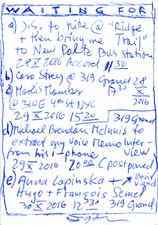 WAITING FOR
a) J.S. to hike @ "Ridge
+ then bring me Trail"
to New Paltz Bus Station
28 X 2016 Accord 1130
b) Caro Story @ 319 Grand 28
c) Model Member 1730 X
@ 310 E 4th St NYC 2016
29 X 2016 1520 319 Grand
d) Michael Brendan McInnis to
extract my Voice Memo later
from his i-phone view
29 X 2016 20 00 (postponed
e) Anna Lapinska +
Hugo + François Senet
30 X 2016 12 30 319 Grand